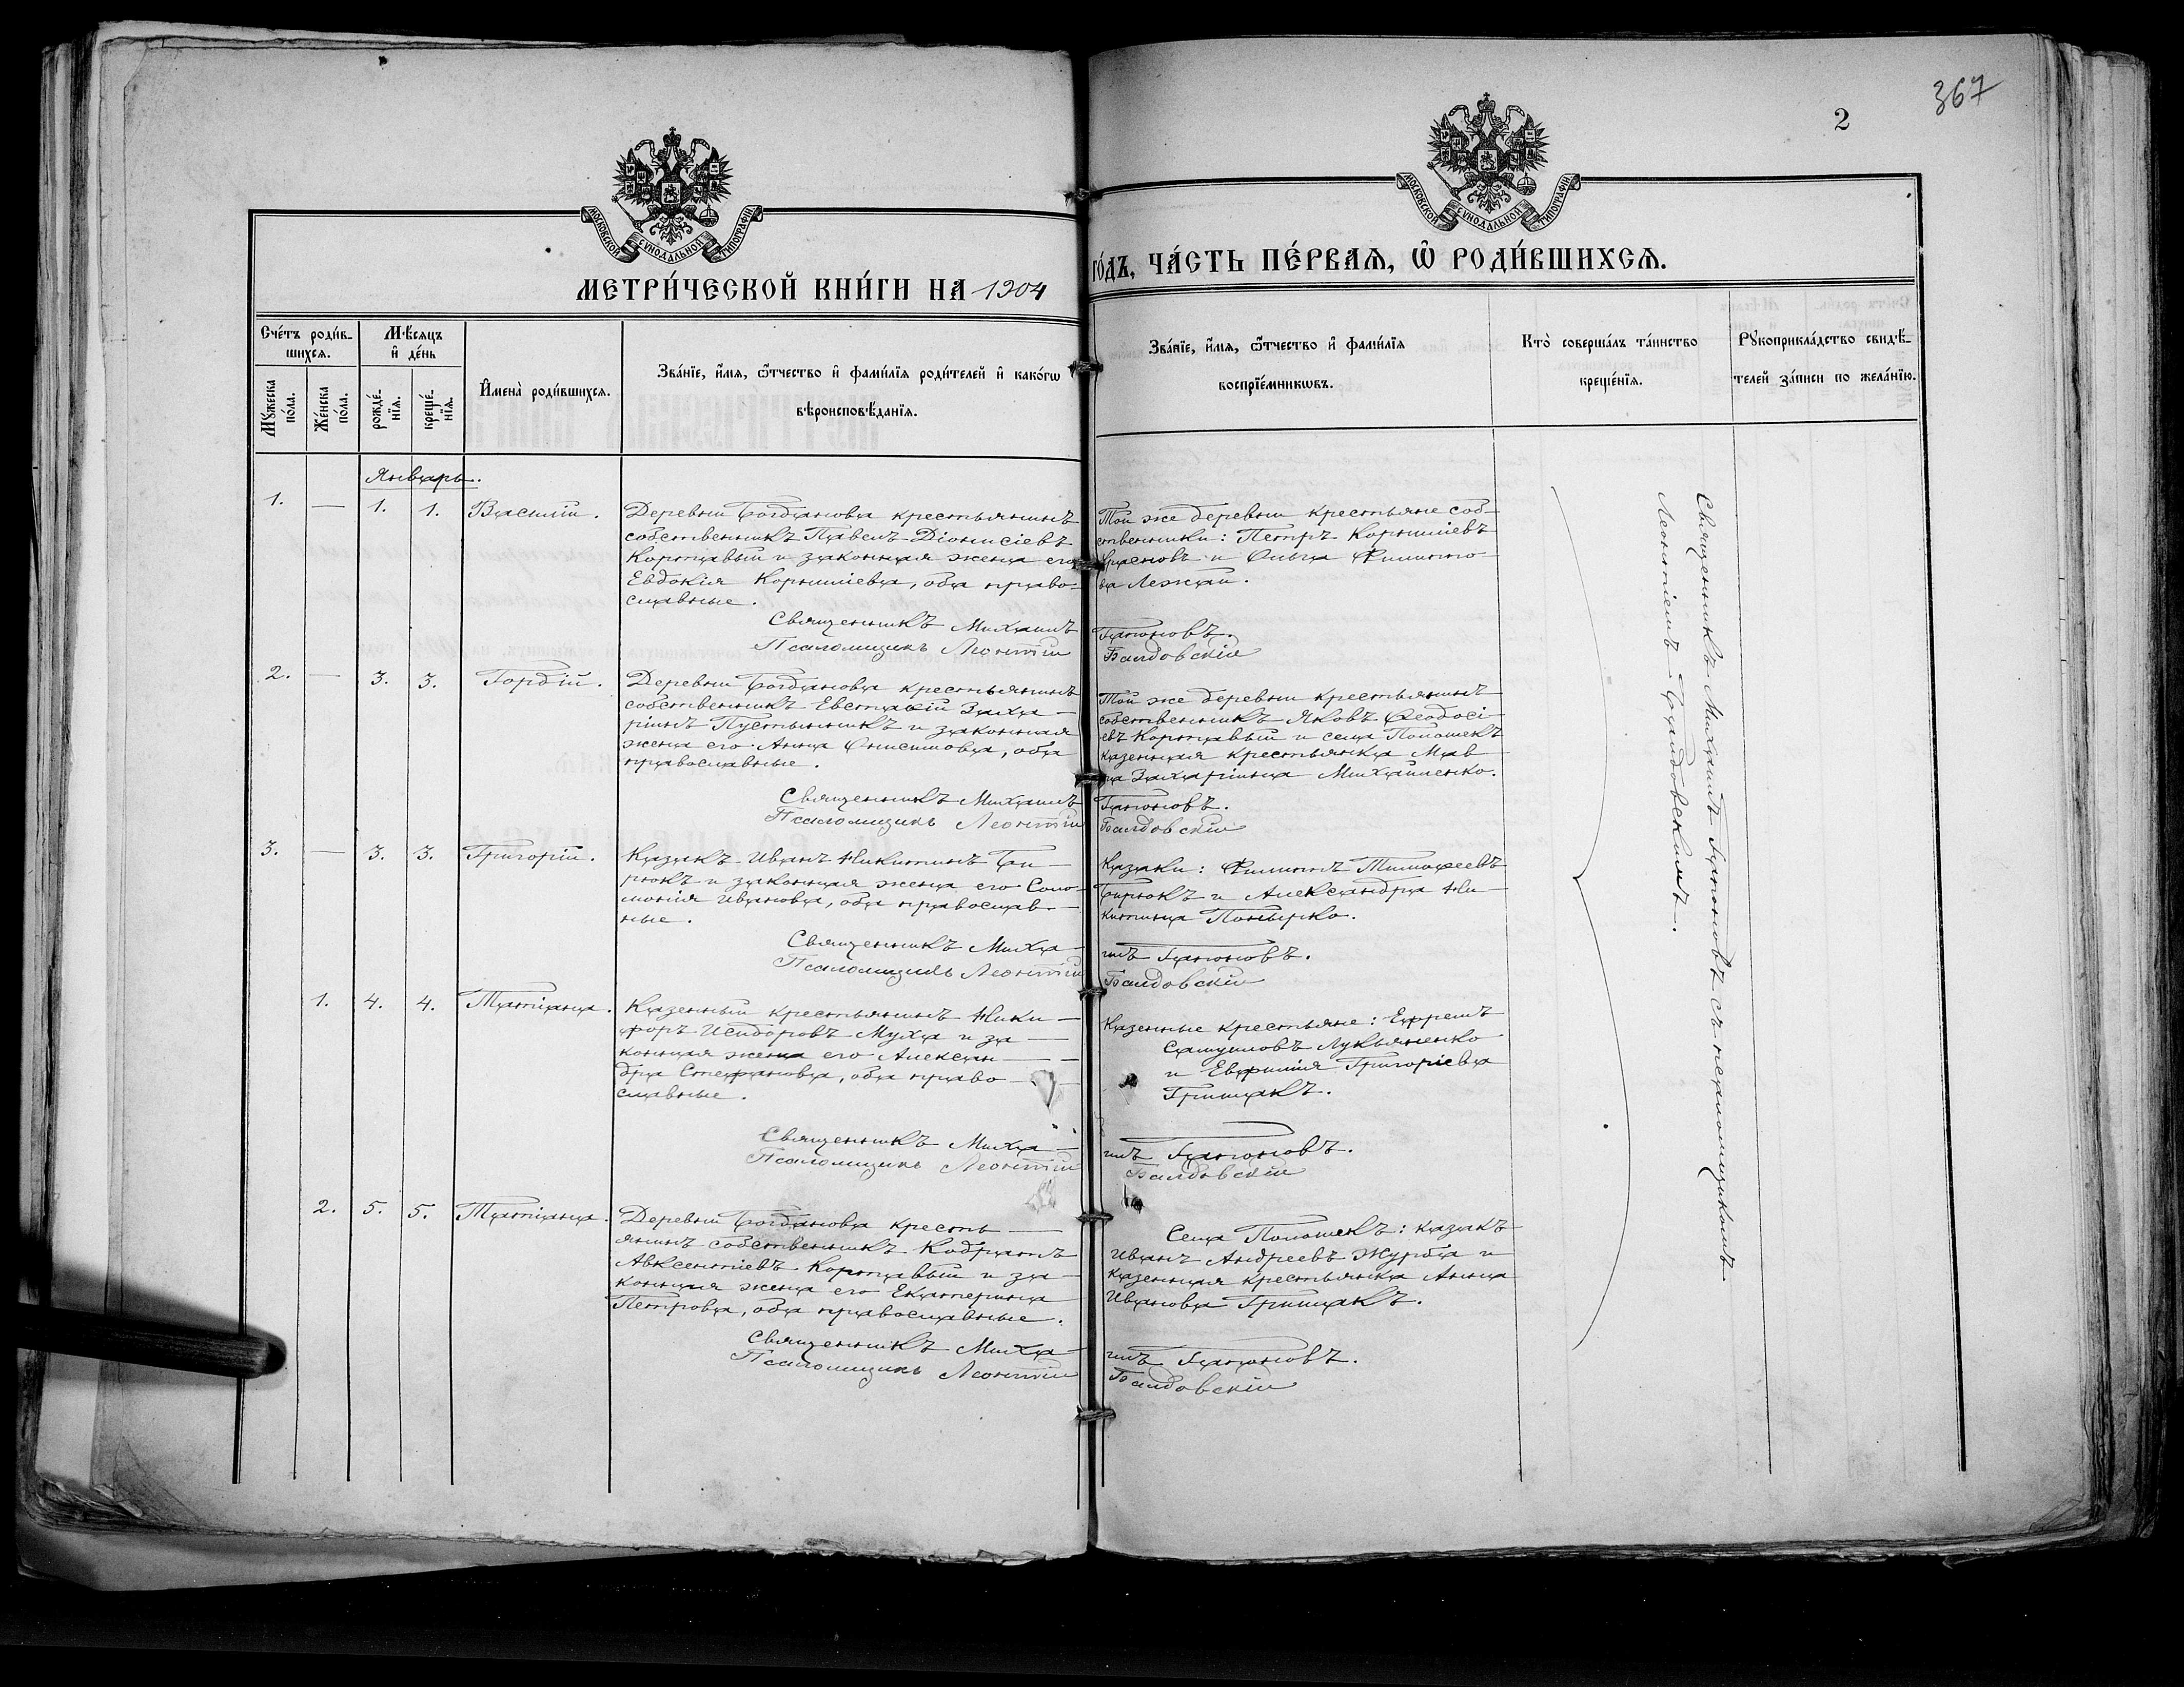 367
2
МОСКОВСКОЙ СѴНОДАЛЬНОЙ ТИПОГРАФІИ
МОСКОВСКОЙ СѴНОДАЛЬНОЙ ТИПОГРАФІИ
МЕТРИ́ЧЕСКОЙ КНИ́ГИ НА 1904
ГО́ДЪ, ЧА́СТЬ ПЕ́РВАѦ, Ѡ҆ РОДИ́ВШИХСѦ.
Сче́тъ роди́в-
шихсѧ.
Мꙋ́жеска по́ла.
Же́нска по́ла.
Мѣ́сѧцъ
и҆ де́нь
рожде́-
нїѧ.
креще́-
нїѧ.
И҆мена̀ роди́вшихсѧ.
Зва́нїе, и҆́мѧ, ѻ҆́тчество и҆ фами́лїѧ роди́телей и҆ како́гѡ
вѣроисповѣ́данїѧ.
Зва́нїе, и҆́мѧ, ѻ҆́тчество и҆ фами́лїѧ
воспрїе́мникѡвъ.
Кто̀ соверша́лъ та́инство
креще́нїѧ.
Рꙋкоприкла́дство свидѣ́-
телей за́писи по жела́нїю.
Январь.
1. — 1. 1. Василій.
Деревни Богданова крестьянинъ
собственникъ Павелъ Діонисіевъ
Кортавый и законная жена его
Евдокія Корниліева, оба право-
славные.
Священникъ Михаилъ
Псаломщикъ Леонтій
Той же деревни крестьяне соб-
ственники: Петръ Корниліевъ
и Ольга Филиппо-
ва Лежай.
Гапоновъ.
Балдовскій
2. — 3. 3. Гордій.
Деревни Богданова крестьянинъ
собственникъ Евстафій Заха-
ріинъ Пустынникъ и законная
жена его Анна Онисимова, оба
православные.
Священникъ Михаилъ
Псаломщикъ Леонтій
Той же деревни крестьянинъ
собственникъ Яковъ Феодосі-
евъ Кортавый и села Попошекъ
казенная крестьянка Мав
ра Захаріина Михайленко.
Гапоновъ.
Балдовскій
3. — 3. 3. Григорій.
Казакъ Иванъ Никитинъ Би-
рюкъ и законная жена его Соло-
монія Иванова, оба православ-
ные.
Священникъ Миха-
Псаломщикъ Леонтій
Казаки: Филиппъ Тимофеевъ
Бирюкъ и Александра Ни-
китина Понырко.
илъ Гапоновъ.
Балдовскій
1. 4. 4. Татіана.
Казенный крестьянинъ Ники-
форъ Исидоровъ Муха и за-
конная жена его Алексан-
дра Стефанова, оба право-
славные.
Священникъ Миха-
Псаломщикъ Леонтій
Казенные крестьяне: Ефремъ
Самуиловъ Лукьяненко
и Евфимія Григоріева
Грищакъ.
илъ Гапоновъ.
Балдовскій
2. 5. 5. Татіана.
Деревни Богданова кресть-
янинъ собственникъ Кодратъ
Авксентіевъ Кортавый и за-
конная жена его Екатерина
Петрова, оба православные.
Священникъ Миха-
Псаломщикъ Леонтій
Села Попошекъ: казакъ
Иванъ Андреевъ Журба и
казенная крестьянка Анна
Иванова Грищакъ.
илъ Гапоновъ.
Балдовскій
Священникъ Михаилъ Гапоновъ съ псаломщикомъ
Леонтіемъ Балдовскимъ.